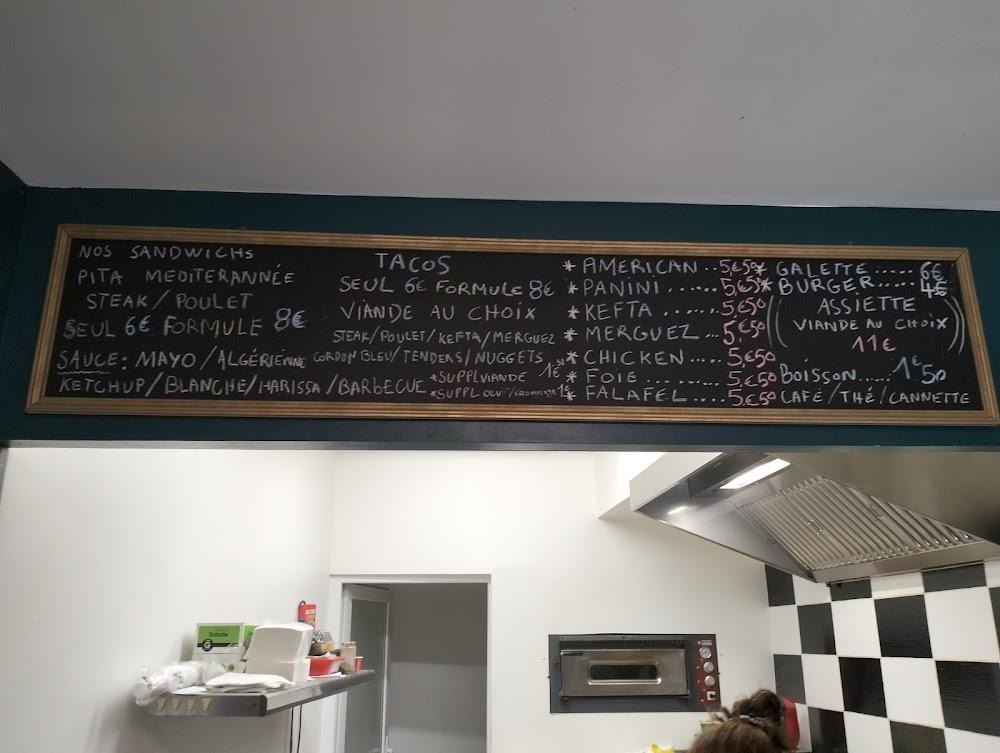 NOS SANDWICHS
PITA MEDITERANNÉE
STEAK/POULET
SEUL 6€ FORMULE 8€
SAUCE: MAYO/ALGÉRIENNE
KETCHUP/BLANCHE/HARISSA/BARBECUE
TACOS
SEUL 6€ FORMULE 8€
VIANDE AU CHOIX
STEAK/POULET/KEFTA/MERGUEZ
CORDON BLEU/TENDERS/NUGGETS
*SUPPL VIANDE 1€50
*SUPPL OEUF/FROMAGE 1€
* AMERICAN .. 5,€50
* PANINI ...... 5€50
* KEFTA ....... 5€50
* MERGUEZ ... 5,€50
* CHICKEN .... 5€50
* FOIE ... ..... 5€50
* FALAFEL ..... 5€50
* GALETTE ..... 6€
* BURGER ..... 4€
ASSIETTE
VIANDE AU CHOIX
11€
BOISSON ..... 1€50
CAFÉ/THÉ/CANNETTE
Salade